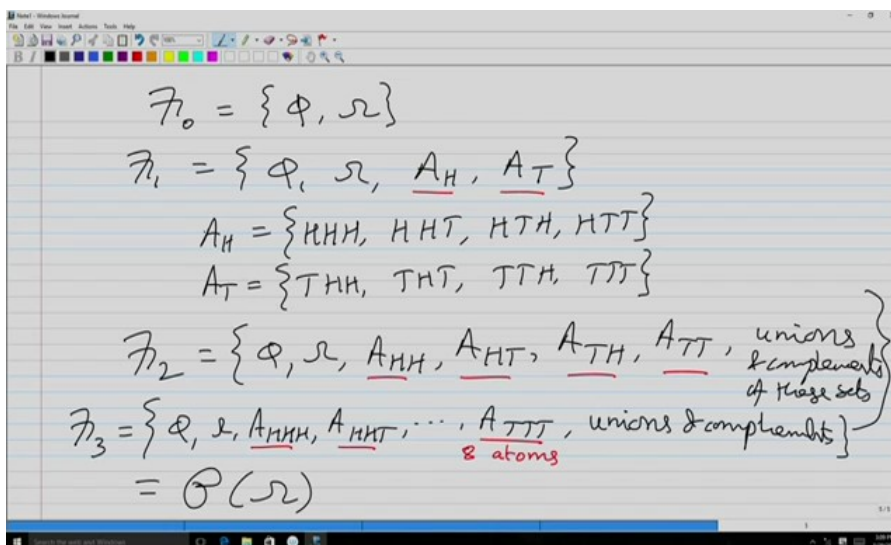 Note1 - Windows Journal
File Edit View Insert Actions Tools Help
B I
ℱ₀ = {Φ, Ω}
ℱ₁ = {Φ, Ω, A_H, A_T}
A_H = {HHH, HHT, HTH, HTT}
A_T = {THH, THT, TTH, TTT}
ℱ₂ = {Φ, Ω, A_HH, A_HT, A_TH, A_TT, unions
& complements
of these sets}
ℱ₃ = {Φ, Ω, A_HHH, A_HHT, ..., A_TTT, unions & complements}
8 atoms
= 𝒫(Ω)
5/5
1
Search the web and Windows